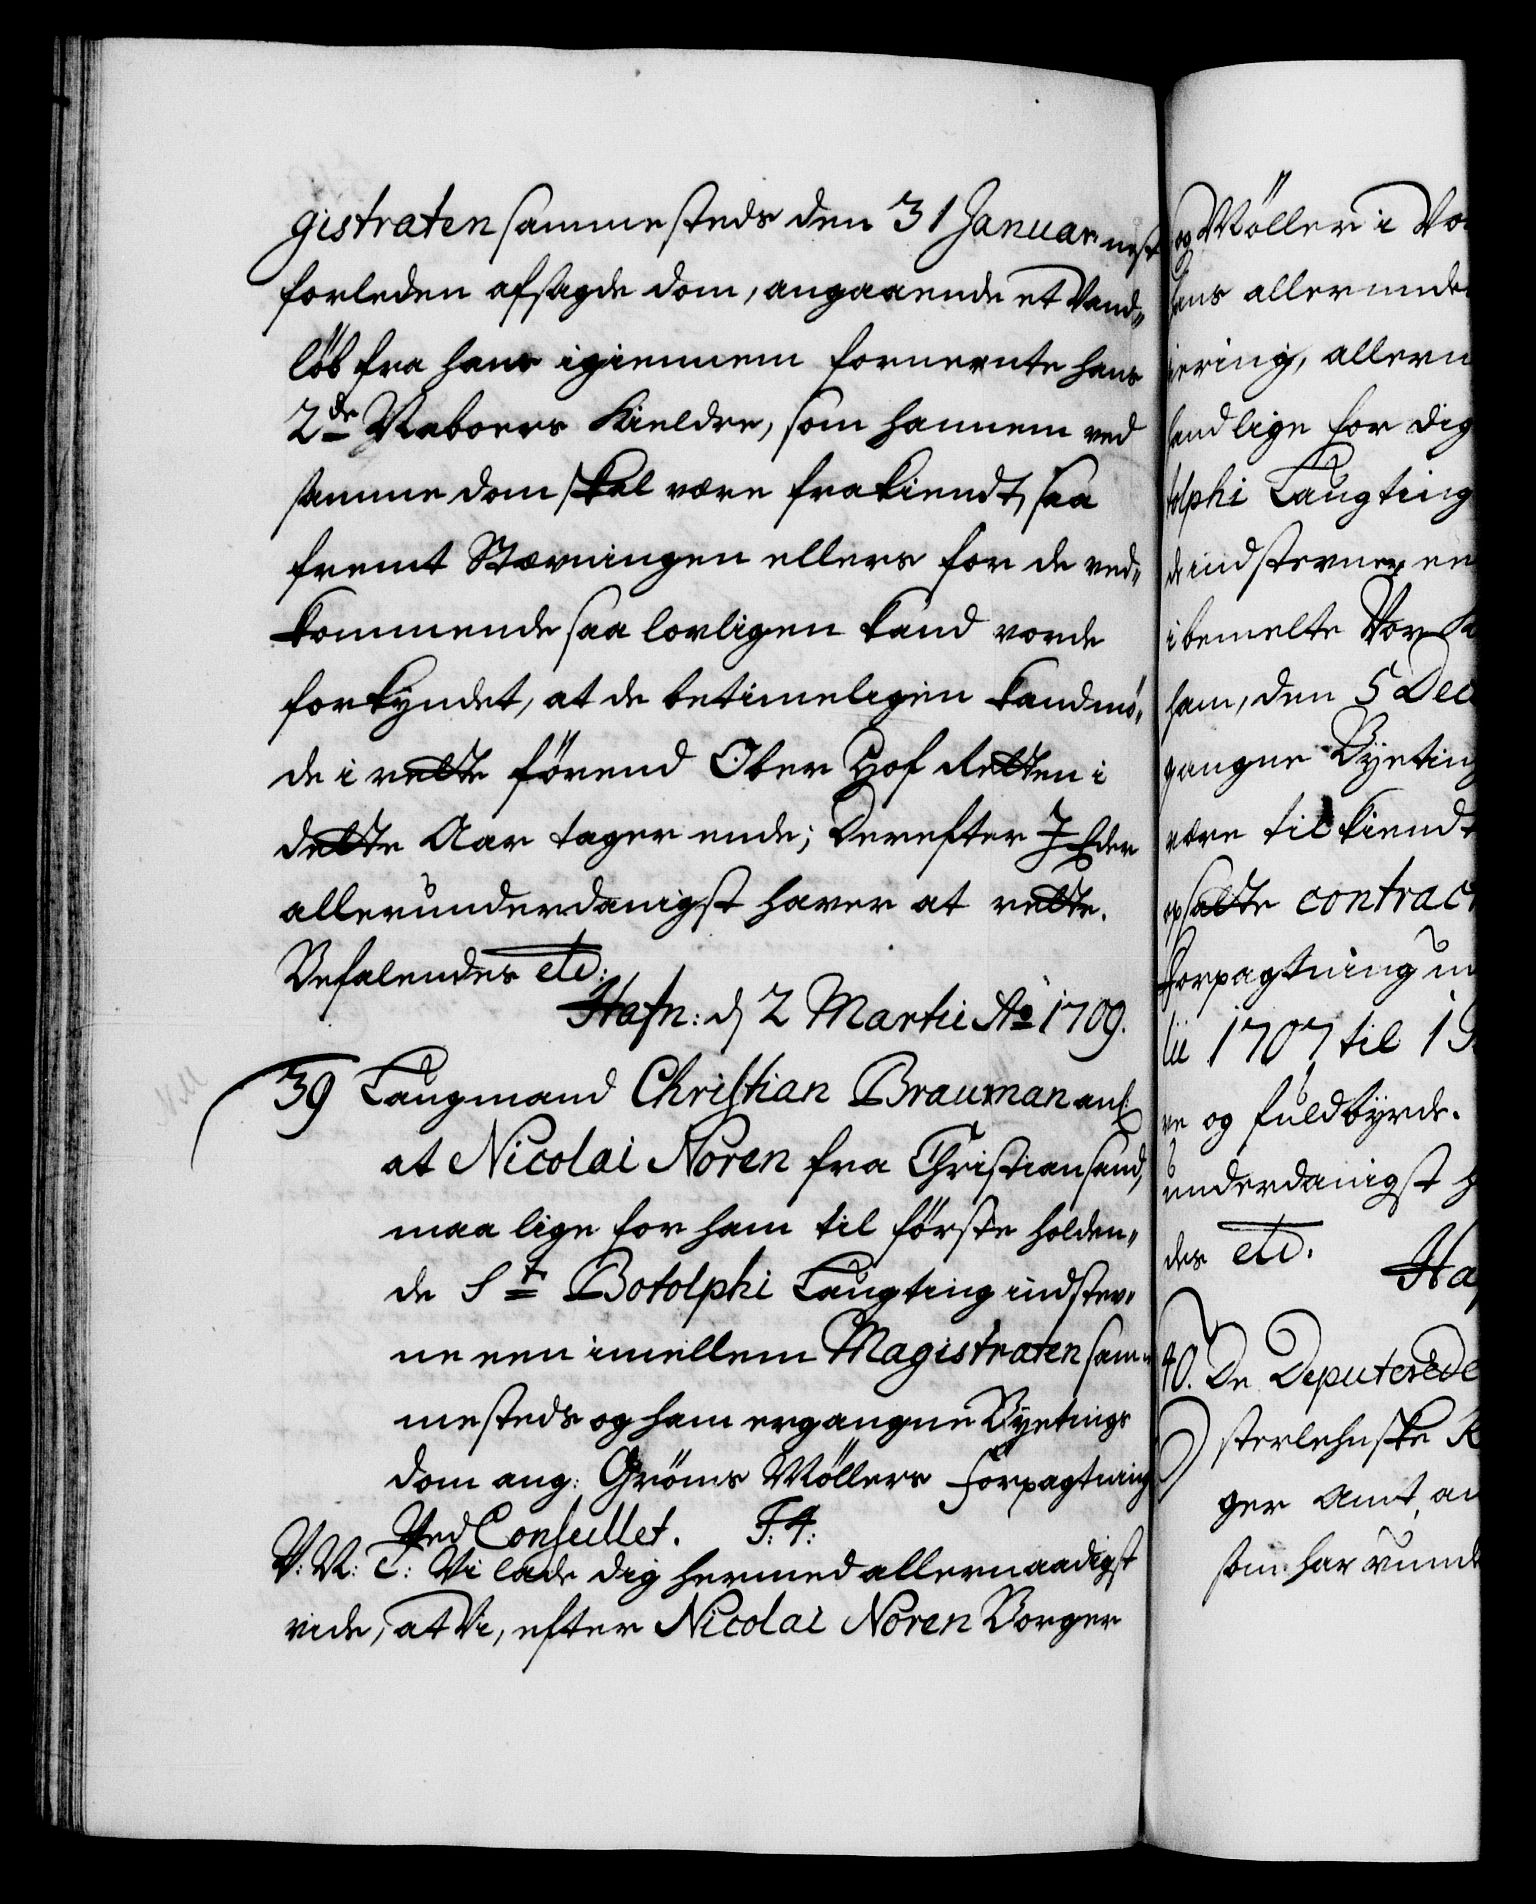 gistraten sammesteds den 31 Januar næst
forleden afsagde dom, angaaende et Vand-
løb fra hans igiennem fornevnte hans
2de Naboers Kieldre, som hannem ved
samme dom skal være frakiendt, saa
fremt Stævningen ellers for de ved-
kommende saa lovligen kand vorde
forkyndet, at de betimeligen kand mö-
de i rette förend Ober Hof Retten i
dette Aar tager ende; Derefter I Eder
allerunderdanigst haver at rette.
Befalendes etc:
Hafn: d 2 Martii Ao 1709.
39 Laugmand Christian Brauman anl:
at Nicolai Noren fra Christiansand,
maa lige for ham til förste holden-
de St Botolphi Laugting indstev-
ne een imellem Magistraten sam-
mesteds og ham ergangne Byetings
dom ang: Gröms Möllers Forpagtning
Ved Consullet. F: 4:
V: N: T: Vi lade dig hermed allernaadigst
vide, at Vi, efter Nicolai Noren Borger
og Möller i Vo
hans allerunde
iering, allern
hand lige for dig
tolphi Laugting
de indstevner en
i bemelte Vor K
ham, den 5 Dec
gangne Byeting
være tilkiendt
opsatte contract
Forpagtning
lii 1707 til 1
re og fuldbyrde.
underdanigst h
des etc.
Haf
40. De Deputerede
sterlehnske R
ger Amt, an
som har vunde